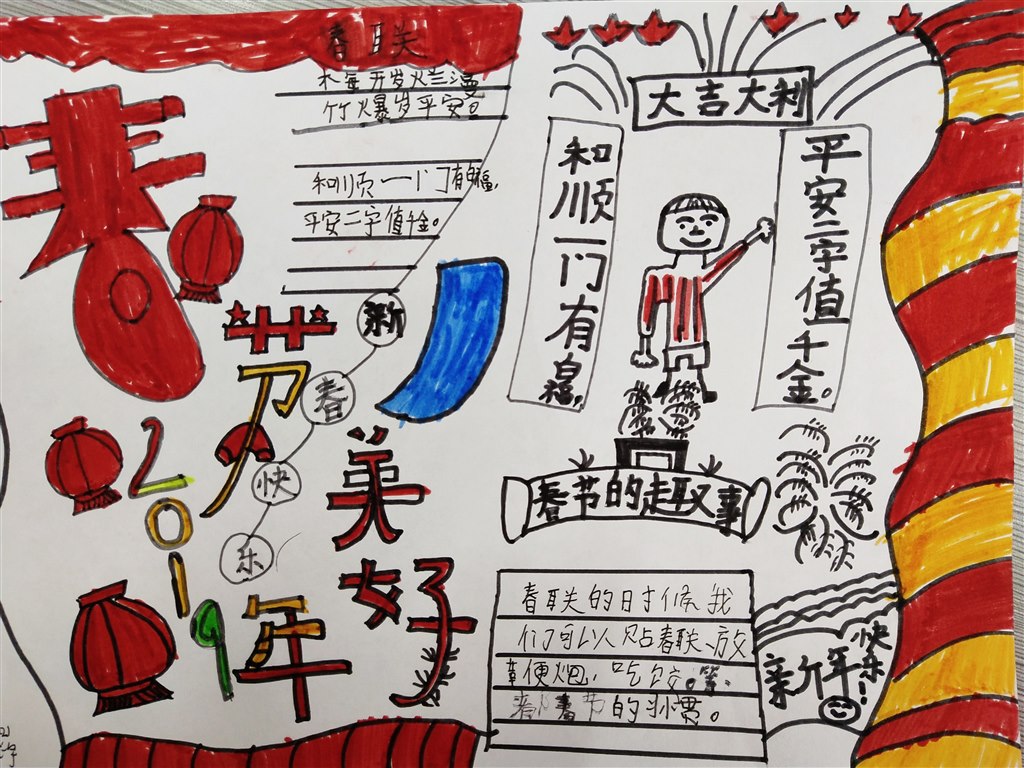 春联
梅开岁烂漫
竹爆岁平安
和顺一门有百福，
平安二字值千金。
春节
新春快乐
2019年
美好
大吉大利
和顺一门有百福，
平安二字值千金。
春节的趣事
春联的时候我
们可以贴春联、放
便炮，吃饺。等、
春节的习惯。
新年快乐！